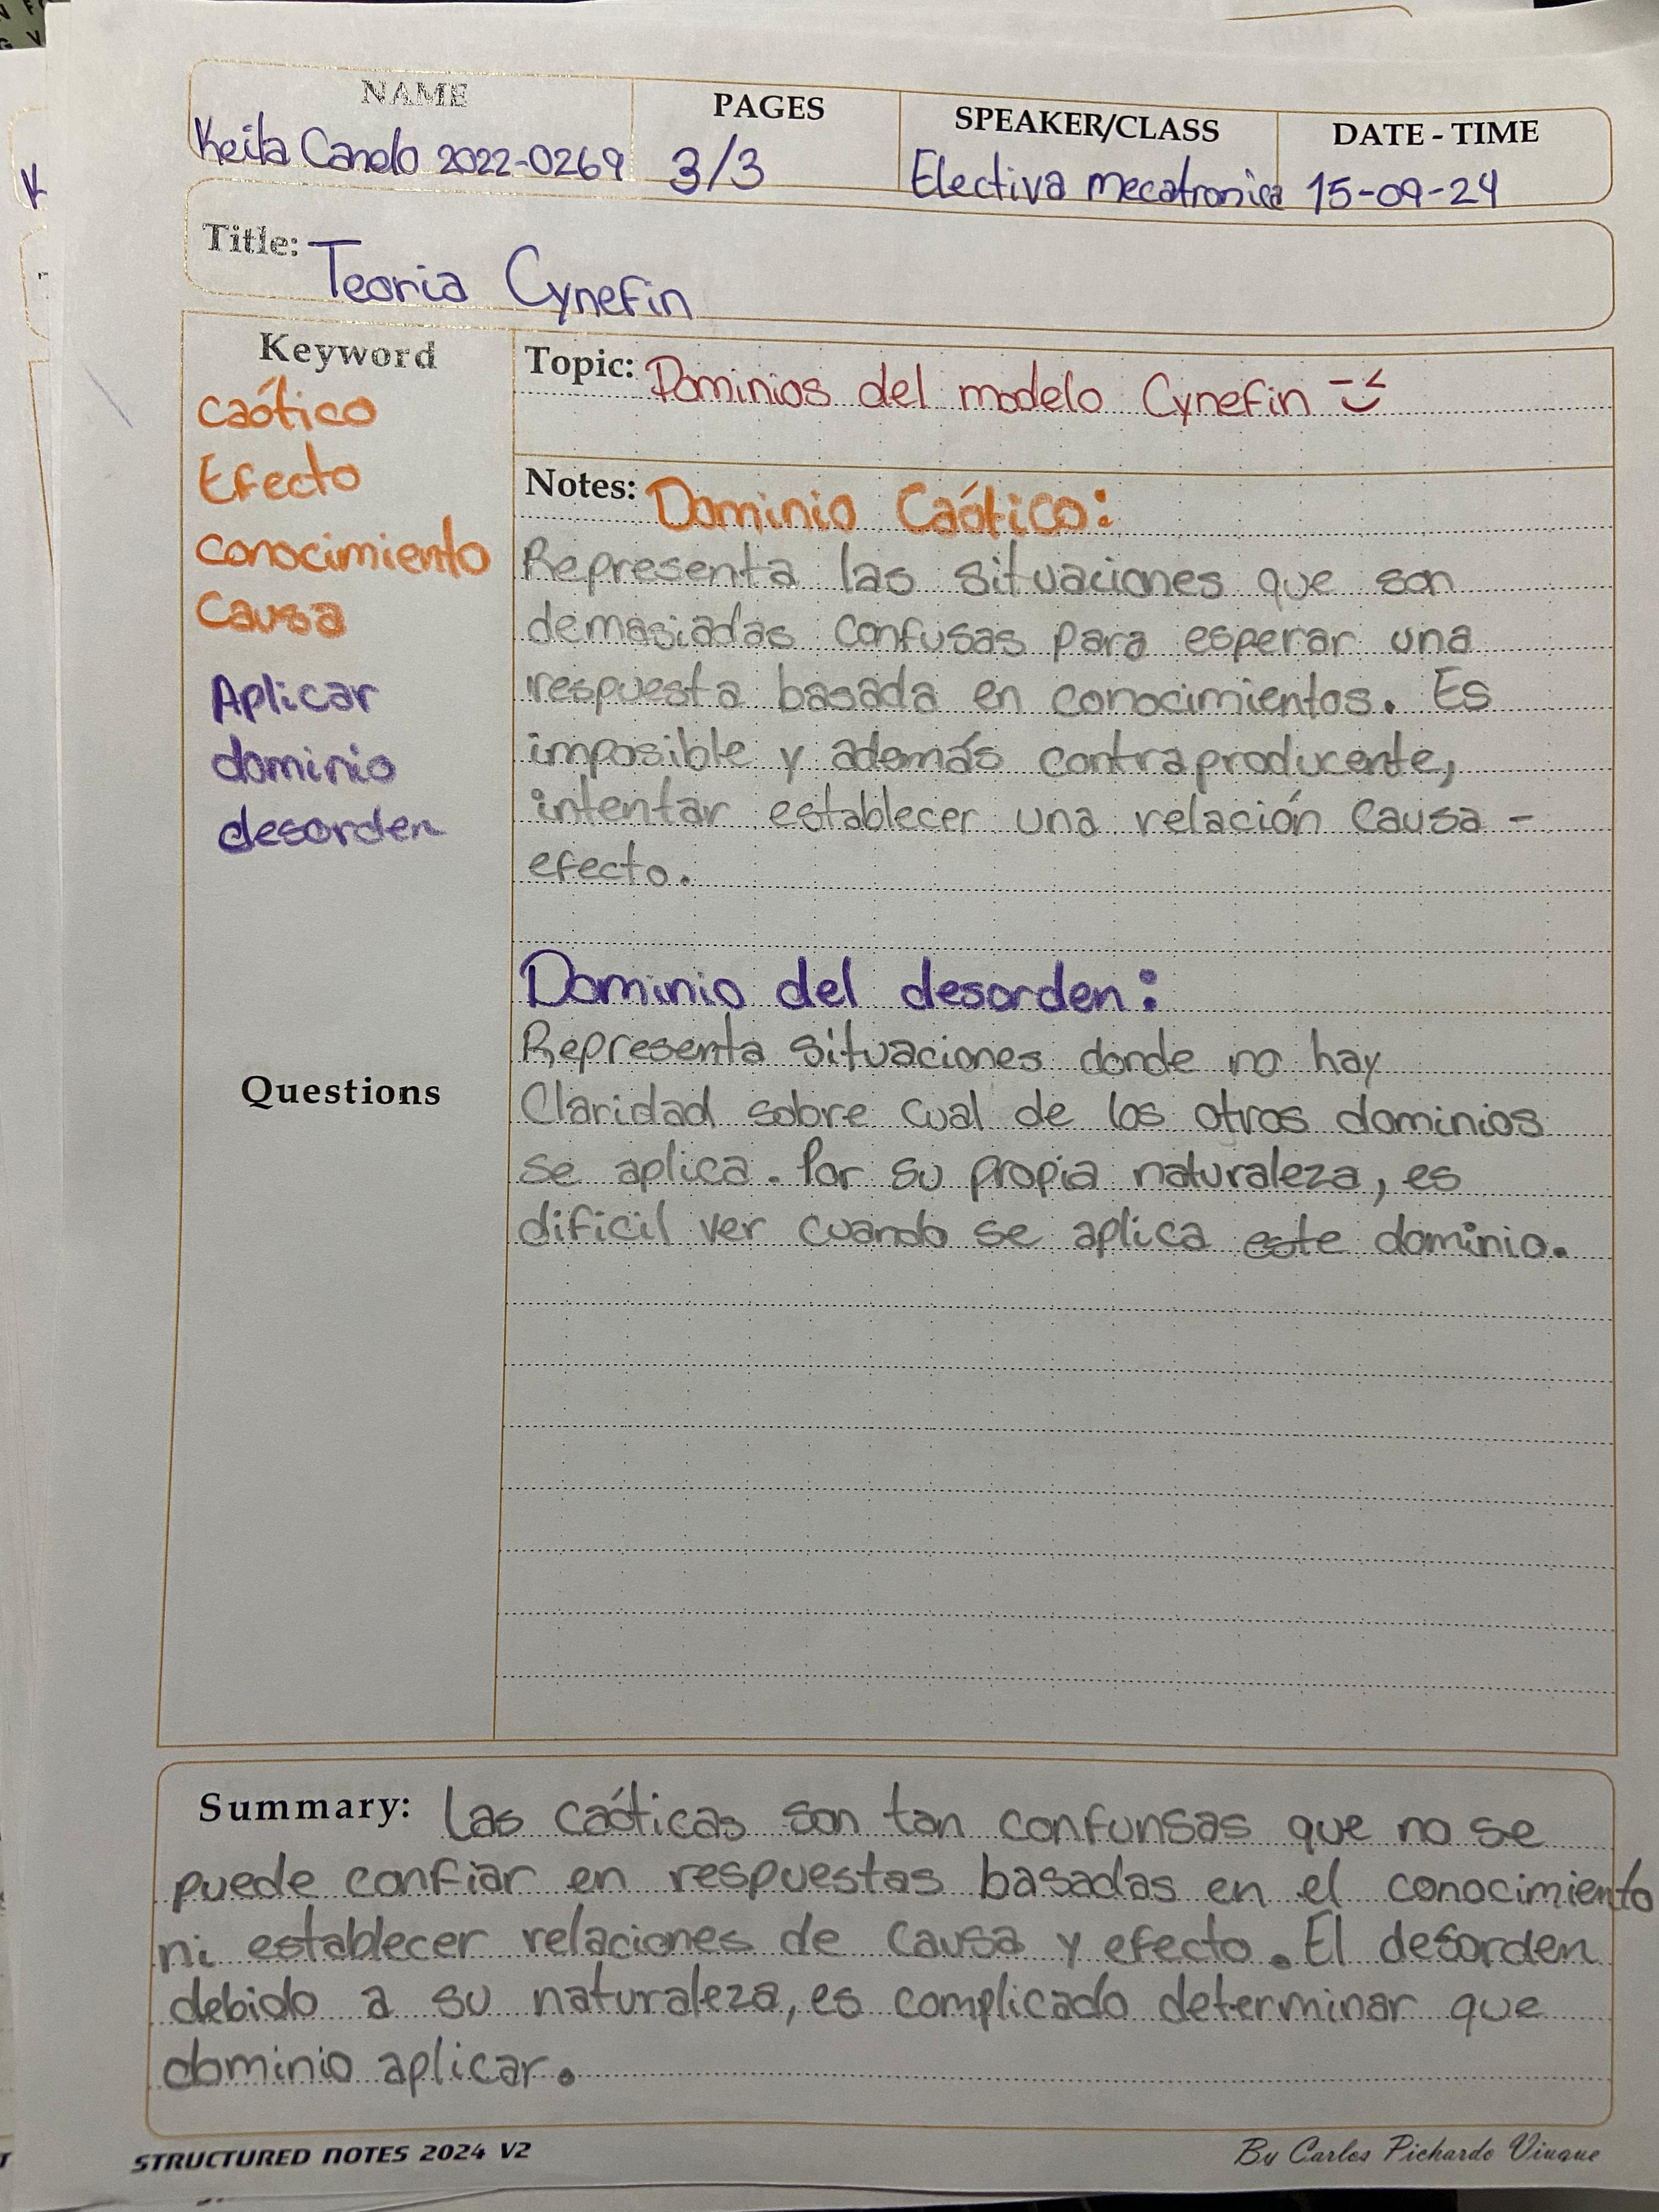 NAME
Keila Canelo 2022-0269
PAGES
3/3
SPEAKER/CLASS
Electiva mecatronica
DATE - TIME
15-09-24
Title: Teoria Cynefin
Keyword
caótico
Efecto
conocimiento
Causa
Aplicar
dominio
desorden
Questions
Topic: Dominios del modelo Cynefin
Notes: Dominio Caótico:
Representa las situaciones que son
demasiadas confusas para esperar una
respuesta basada en conocimientos. Es
imposible y además contraproducente,
intentar establecer una relación causa -
efecto.
Dominio del desorden:
Representa situaciones donde no hay
Claridad sobre cual de los otros dominios
se aplica. Por su propia naturaleza, es
dificil ver cuando se aplica este dominio.
Summary: Las caóticas son tan confunsas que no se
puede confiar en respuestas basadas en el conocimiento
ni establecer relaciones de causa y efecto. El desorden
debido a su naturaleza, es complicado determinar que
dominio aplicar.
STRUCTURED NOTES 2024 V2
By Carlos Pichardo Viuque